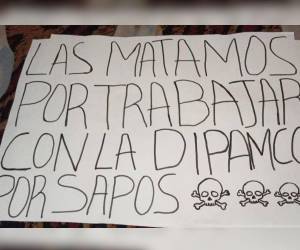 LAS MATAMOS
POR TRABAJAR
CON LA DIPAMCO
POR SAPOS